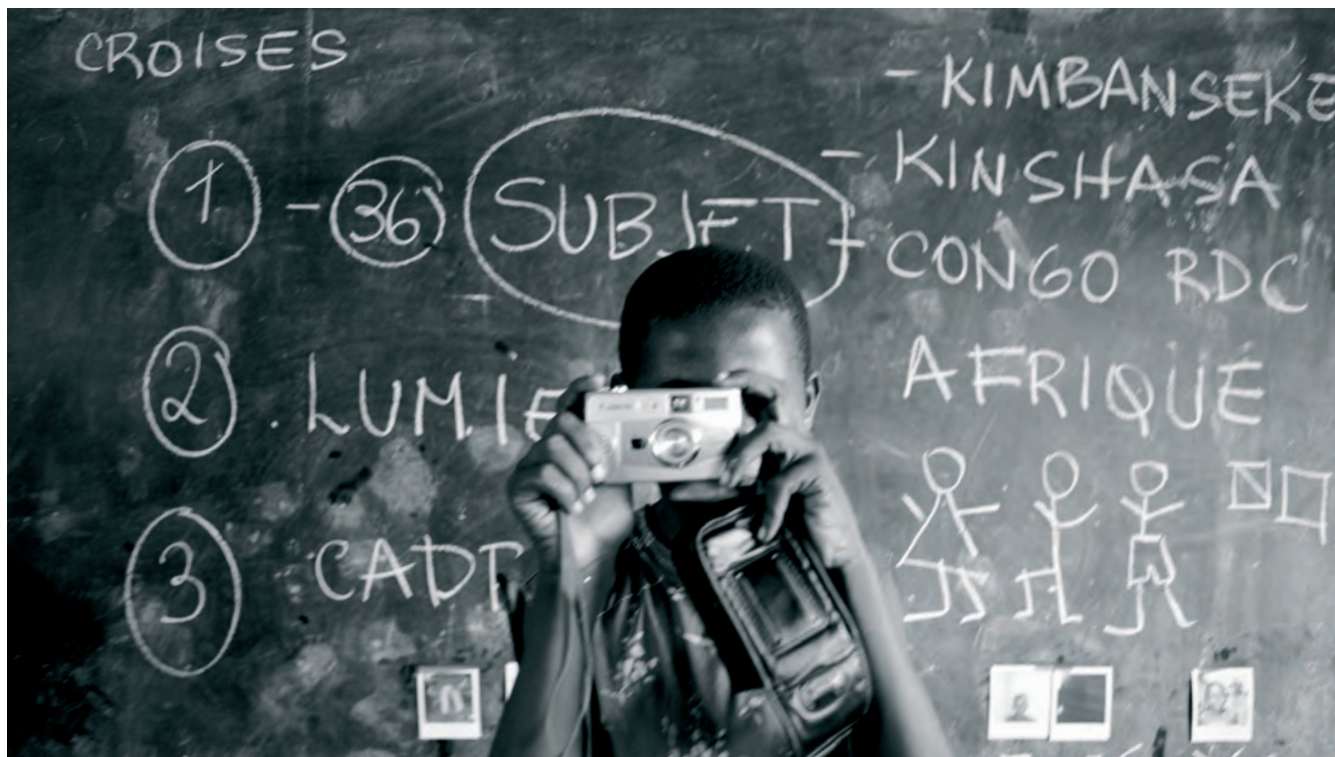 CROISES
1 - 36 SUBJET
2 . LUMIE
3 CADR
- KIMBANSEKE
- KINSHASA
- CONGO RDC
AFRIQUE